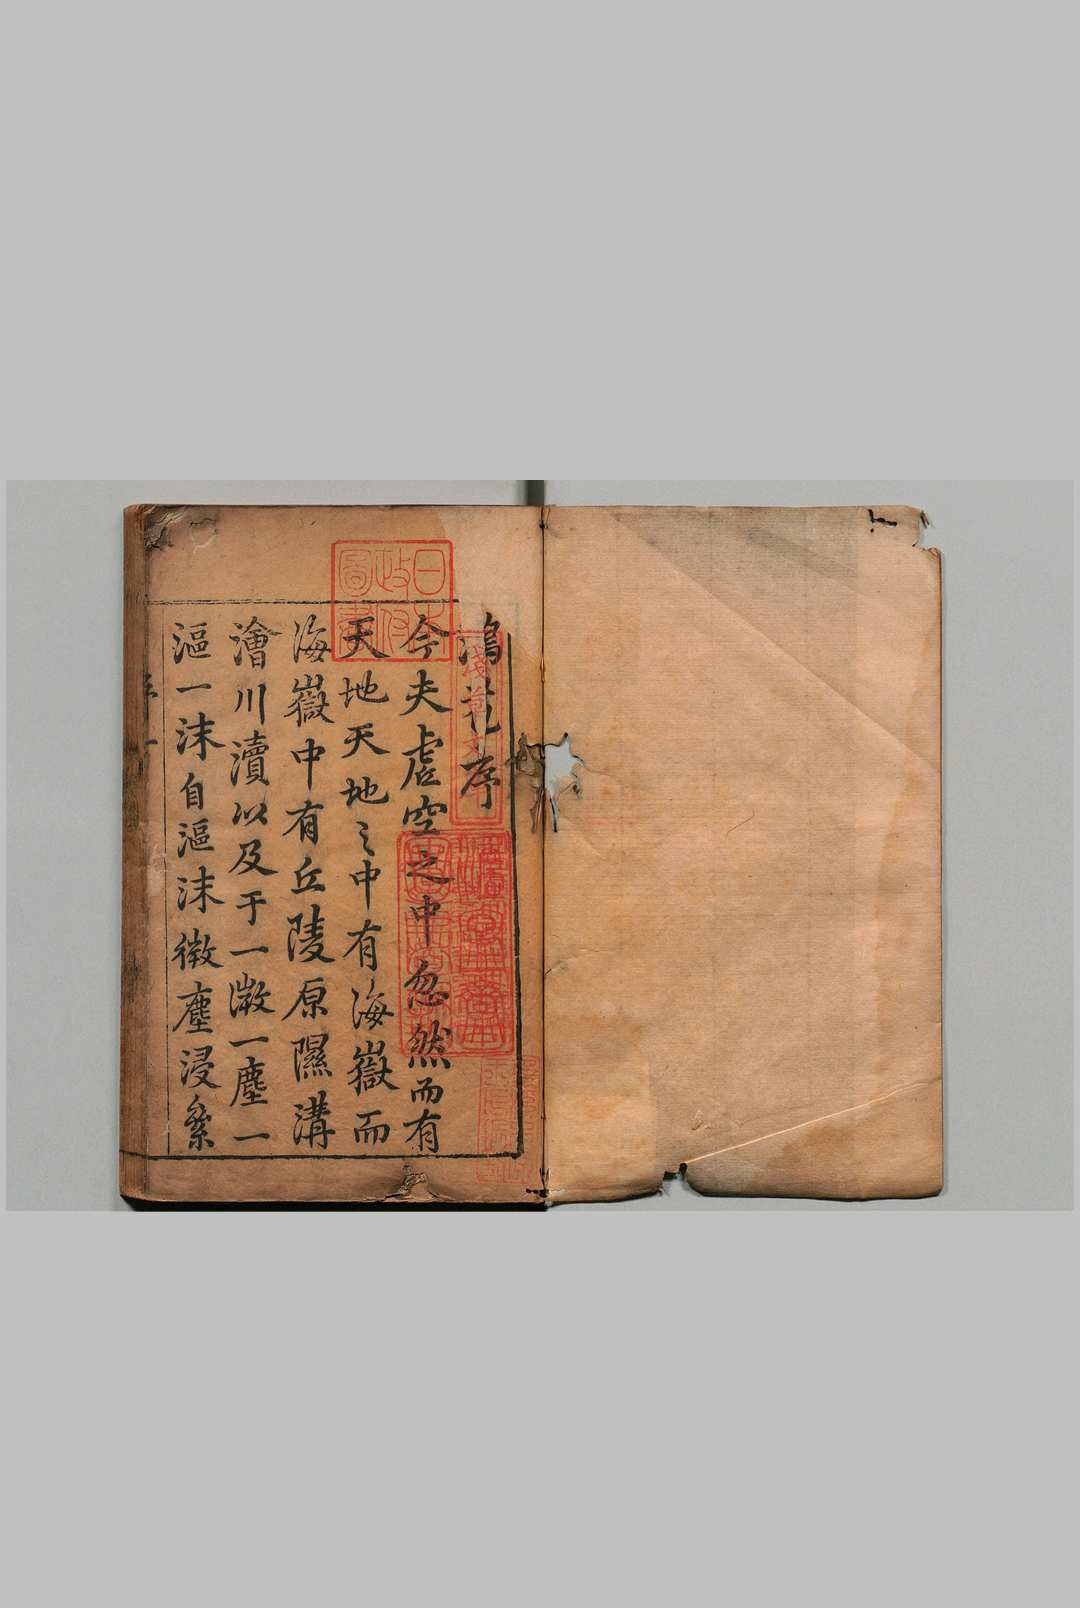 鴻苞序
今夫虛空之中忽然而有
天地天地之中有海嶽而
海嶽中有丘陵原隰溝
澮川瀆以及于一漚一塵一
漚一沫自漚沫微塵浸參
日本
政府
圖書
淺草文庫